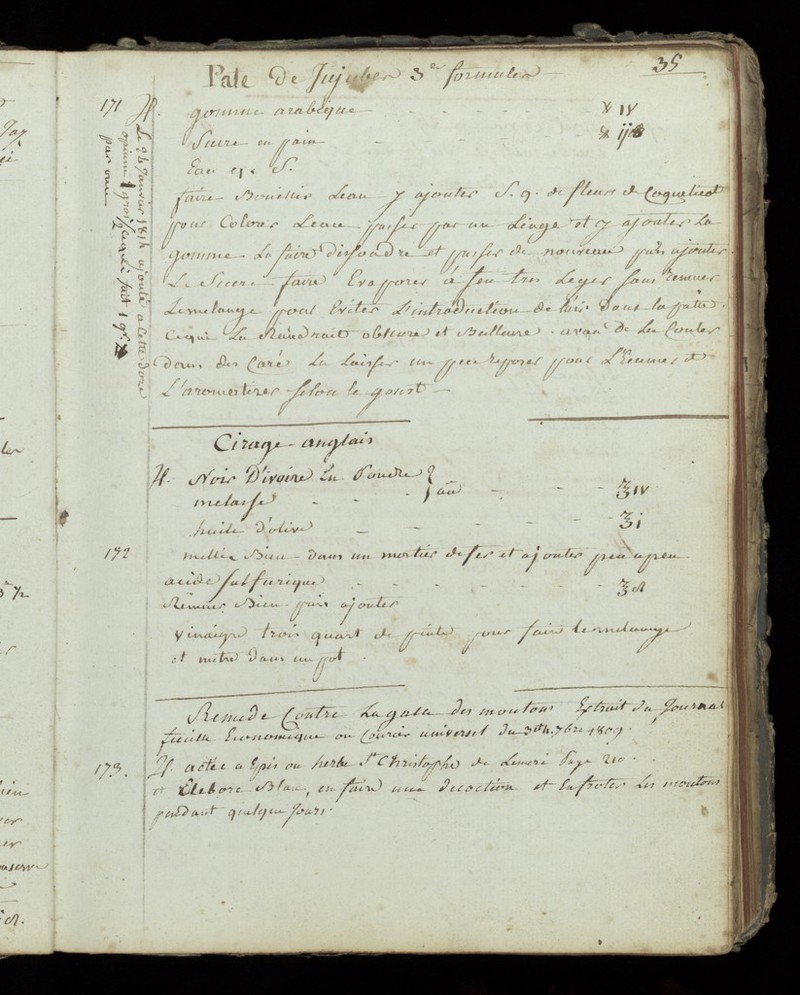 35
Pate De Jujubes 3e formules
171 ♃. gomme arabique ℔ IV
Sucre en pain ℔ ij
Eau q. S.
faire Bouillir Leau y ajouter S. q. de fleurs de Coquelicot
pour Colorer Leau passer par un Linge et y ajouter La
gomme La faire dissoudre et passer de nouveau puis ajouter
Le Sucre faire Evaporer à feu tres Leger sans remuer
Lemelange pour Eviter L'introduction de lair dans la patte
Ce qui La Rendrait obscure et Bulleuse. avan De La Couler
Dans des Caré La Laisser un peu reposer pour L'Ecumer et
L'aromatiser selon le goust
Le 24 Janvier 1814 ajouté a Cette doze
opium 1 gros Ce qui fait 1 gr.
par once
Cirage anglais
♃. Noir D'ivoire En Poudre } aa ʒ IV
melasse
huile d'olive ʒ j
172 mellez Bien dans un mortier de fer et ajouter peu apeu
acide sulfurique ʒ
Remuer Bien puis ajouter
Vinaigre trois quart de pinte pour faire le melange
et mettre dans un pot.
Remede Contre La galle des moutons Extrait du Journal
feuille Economique ou Courier universel Du 7bre 1809.
173. ♃. actée a Epis ou herbe St Christophe de Lemeri Page 210.
et Elebore Blan, en faire une decoction et En froter Les moutons
pendant quelque Jours.